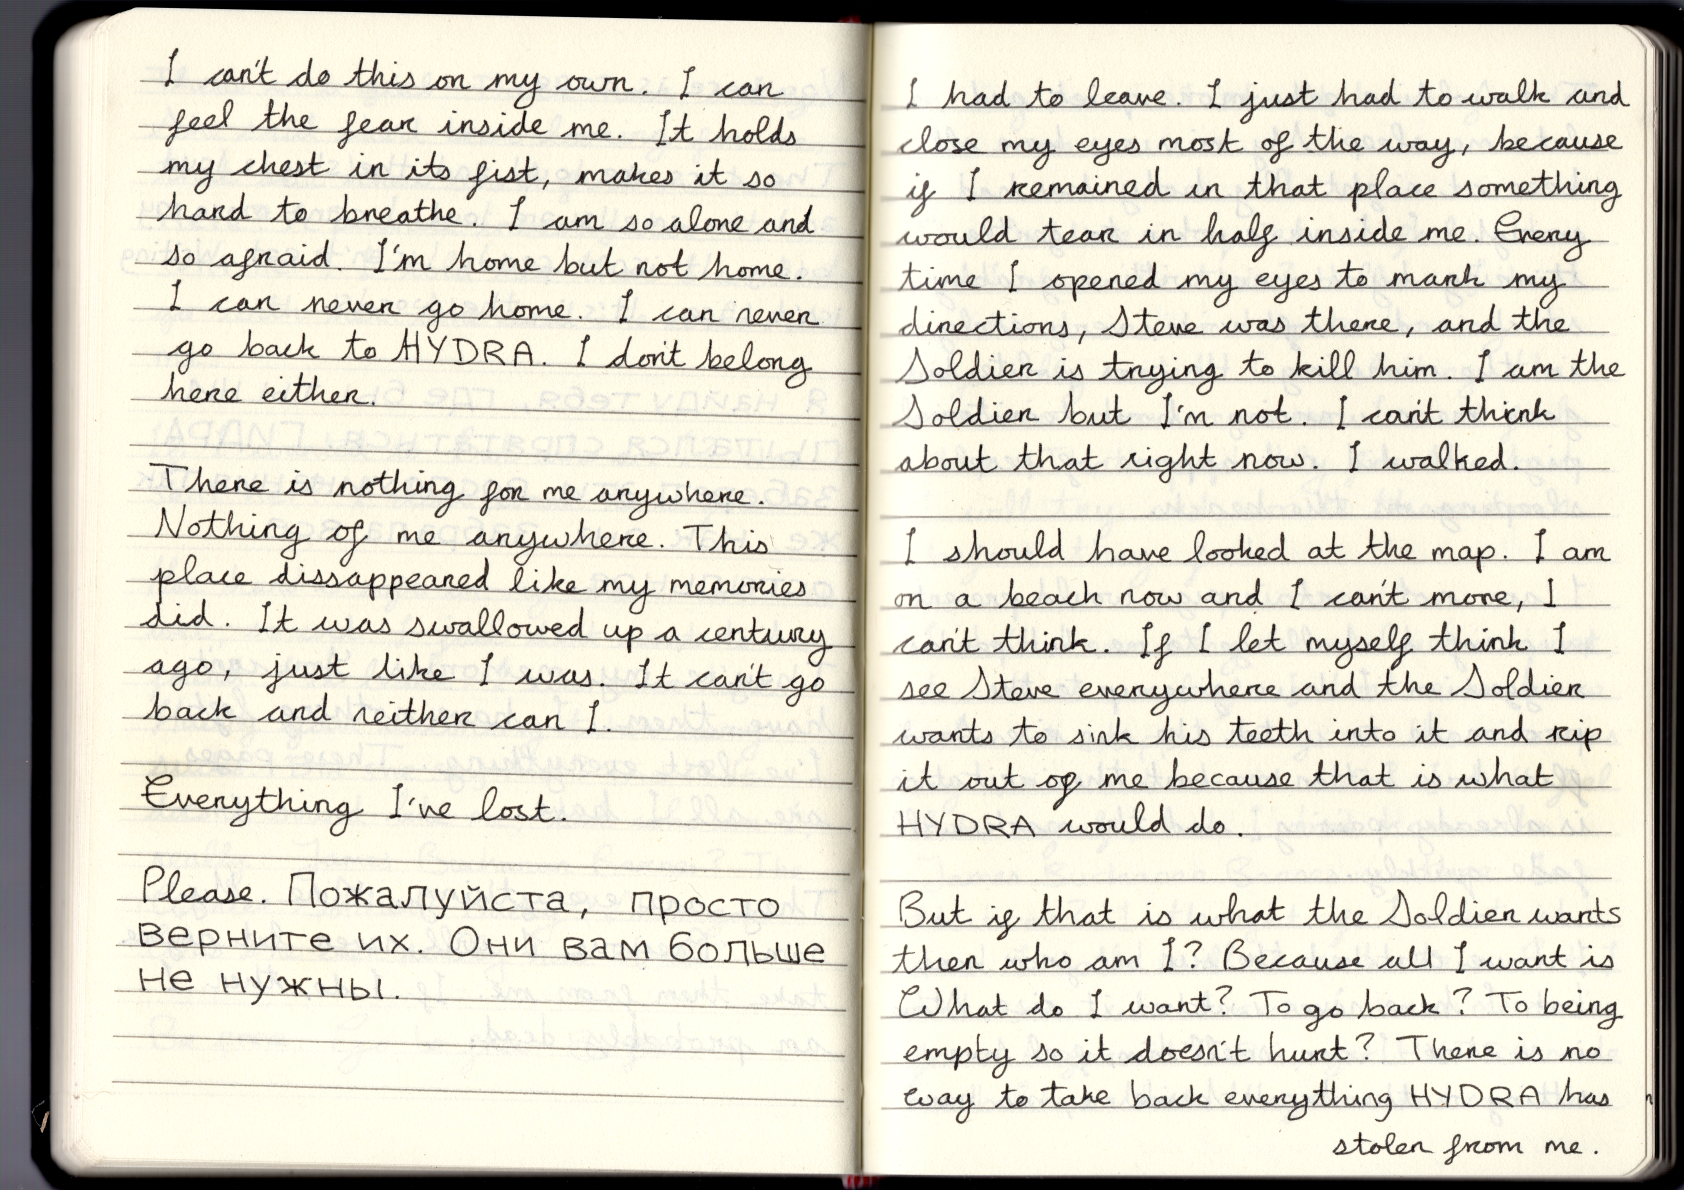 I can't do this on my own. I can
feel the fear inside me. It holds
my chest in its fist, makes it so
hard to breathe. I am so alone and
so afraid. I'm home but not home.
I can never go home. I can never
go back to HYDRA. I don't belong
here either.
There is nothing for me anywhere.
Nothing of me anywhere. This
place dissappeared like my memories
did. It was swallowed up a century
ago, just like I was. It can't go
back and neither can I.
Everything I've lost.
Please. Пожалуйста, просто
верните их. Они вам больше
не нужны.
I had to leave. I just had to walk and
close my eyes most of the way, because
if I remained in that place something
would tear in half inside me. Every
time I opened my eyes to mark my
directions, Steve was there, and the
Soldier is trying to kill him. I am the
Soldier but I'm not. I can't think
about that right now. I walked.
I should have looked at the map. I am
on a beach now and I can't move, I
can't think. If I let myself think I
see Steve everywhere and the Soldier
wants to sink his teeth into it and rip
it out of me because that is what
HYDRA would do.
But if that is what the Soldier wants
then who am I? Because all I want is
What do I want? To go back? To being
empty so it doesn't hurt? There is no
way to take back everything HYDRA has
stolen from me.